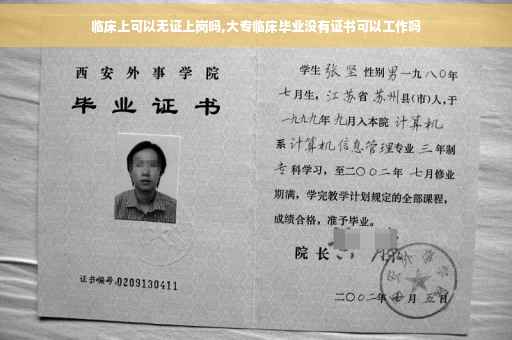 临床上可以无证上岗吗,大专临床毕业没有证书可以工作吗
西安外事学院
毕业证书
证书编号:0209130411
学生 张坚 性别 男 一九八〇年
七月生，江苏省 苏州县(市)人，于
一九九九年 九月入本院 计算机
系 计算机信息管理专业 三 年制
专 科学习，至二〇〇二年 七月修业
期满，学完教学计划规定的全部课程，
成绩合格，准予毕业。
院长
二〇〇二年 月 五日